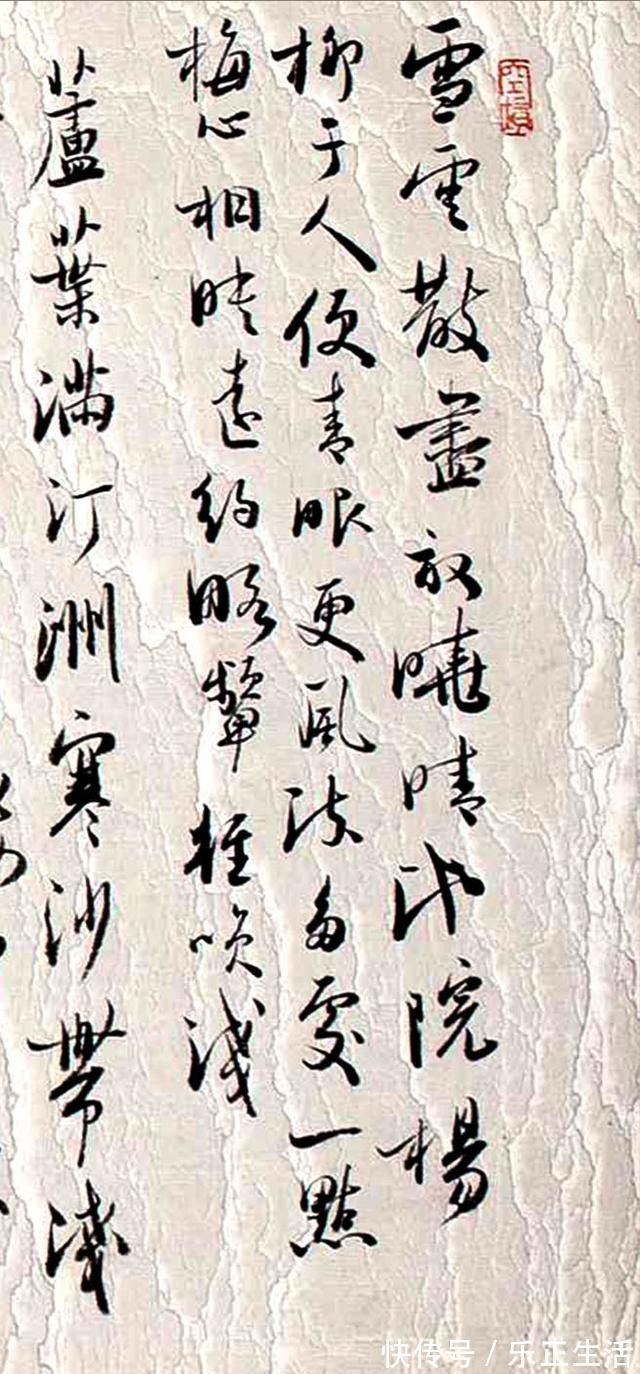 雪雲散盡放曉晴池院楊
柳于人便青眼更風流多處一點
梅心相映遠約略顰輕咲淺
蘆葉滿汀洲寒沙帶淺
快传号 / 乐正生活